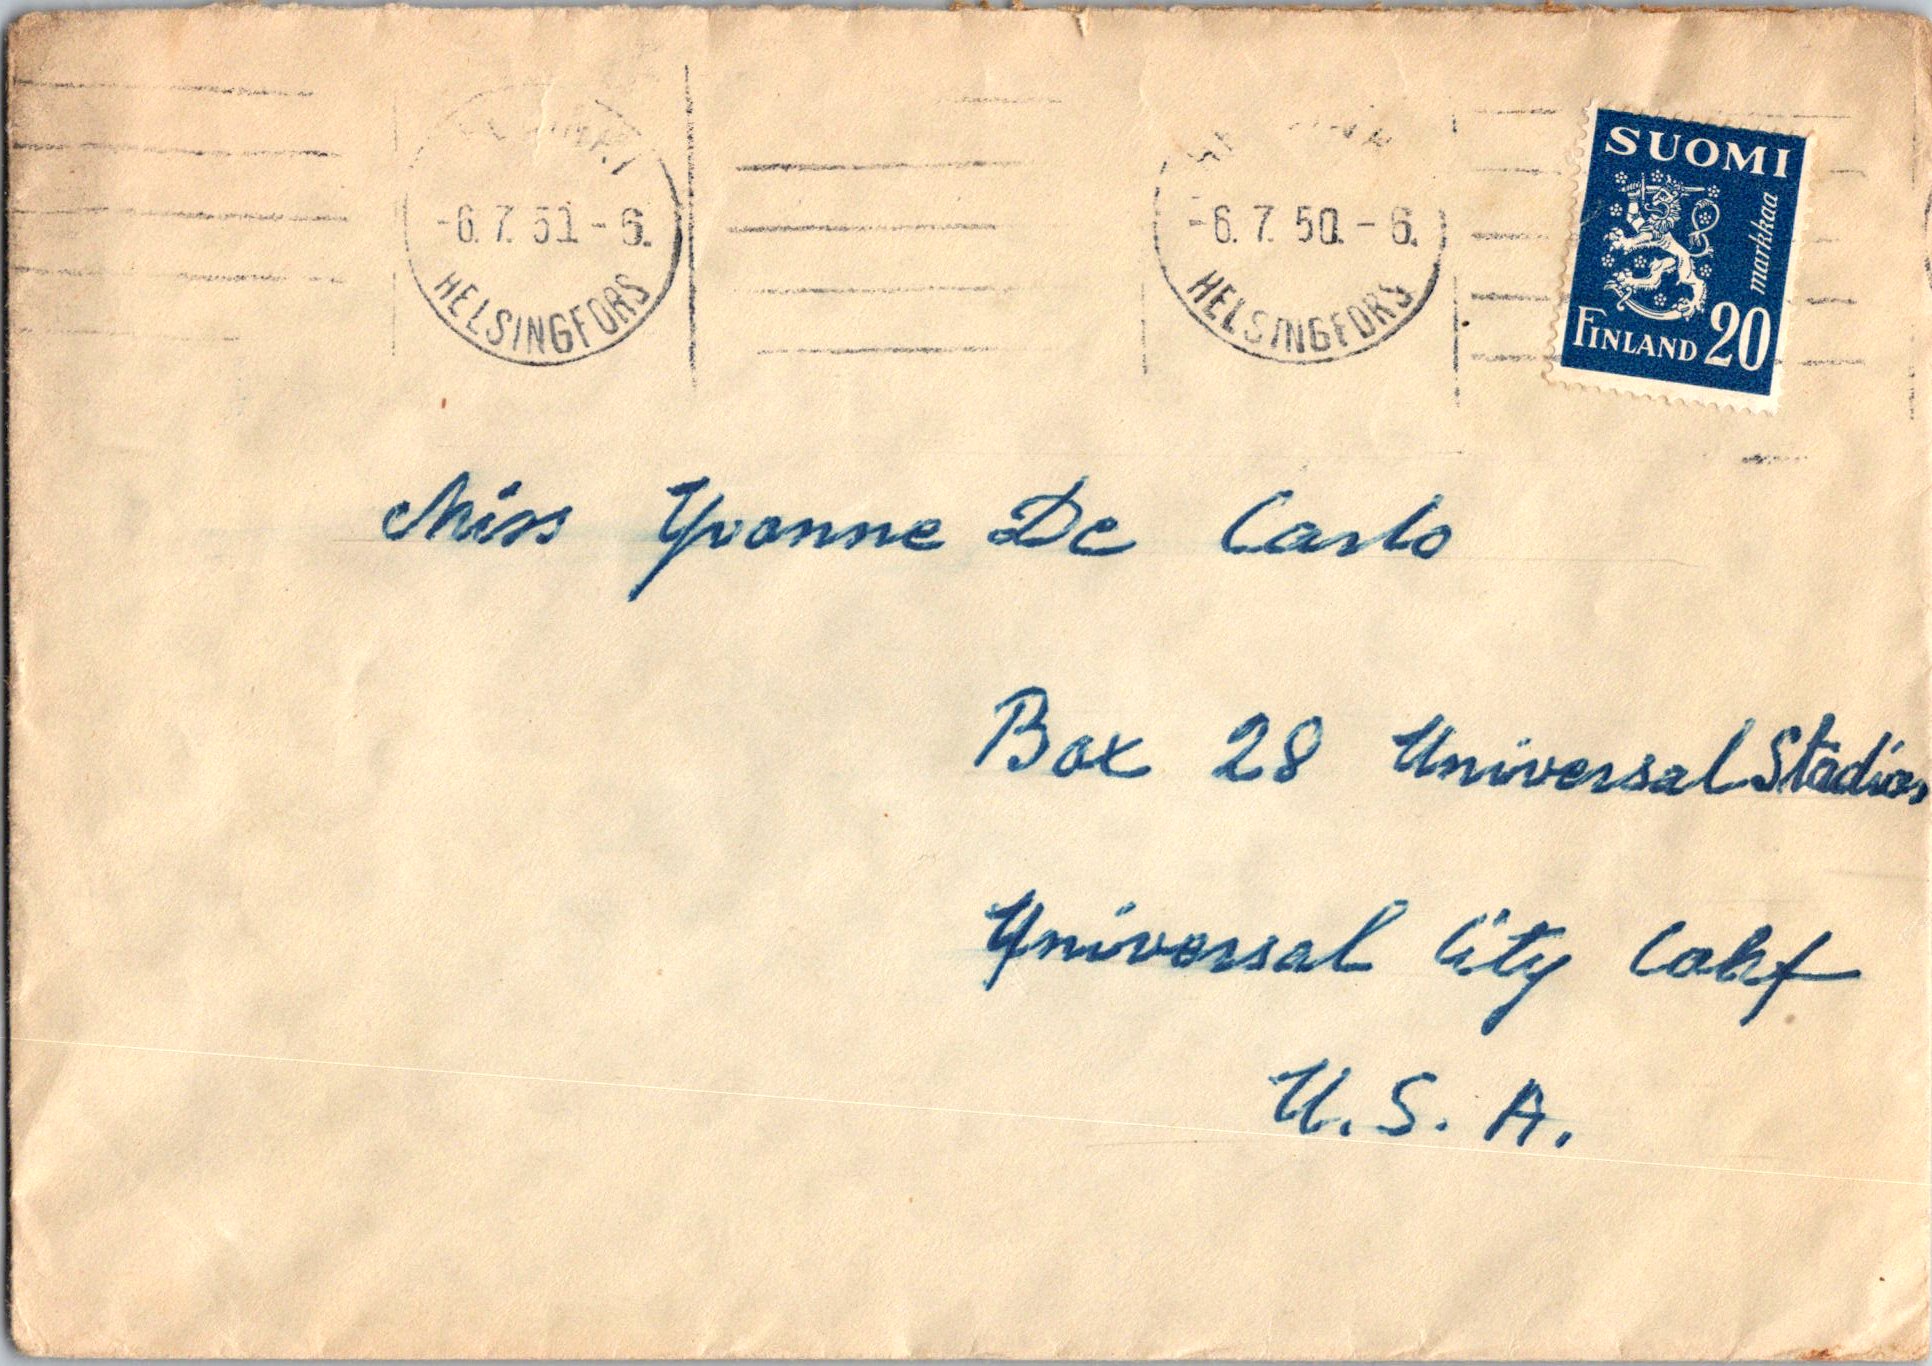 HELSINKI
-6. 7. 51 - 6.
HELSINGFORS
-6. 7. 50. - 6.
HELSINGFORS
SUOMI
markkaa
FINLAND 20
Miss Yvonne De Carlo
Box 28 Universal Studios
Universal City Calif
U.S.A.